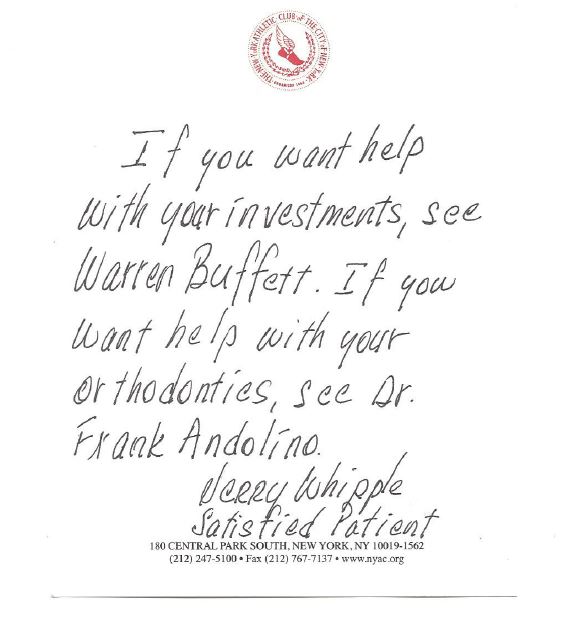 THE NEW YORK ATHLETIC CLUB OF THE CITY OF NEW YORK
If you want help
with your investments, see
Warren Buffett. If you
want help with your
orthodontics, see Dr.
Frank Andolino.
Jerry Whipple
Satisfied Patient
180 CENTRAL PARK SOUTH, NEW YORK, NY 10019-1562
(212) 247-5100 • Fax (212) 767-7137 • www.nyac.org